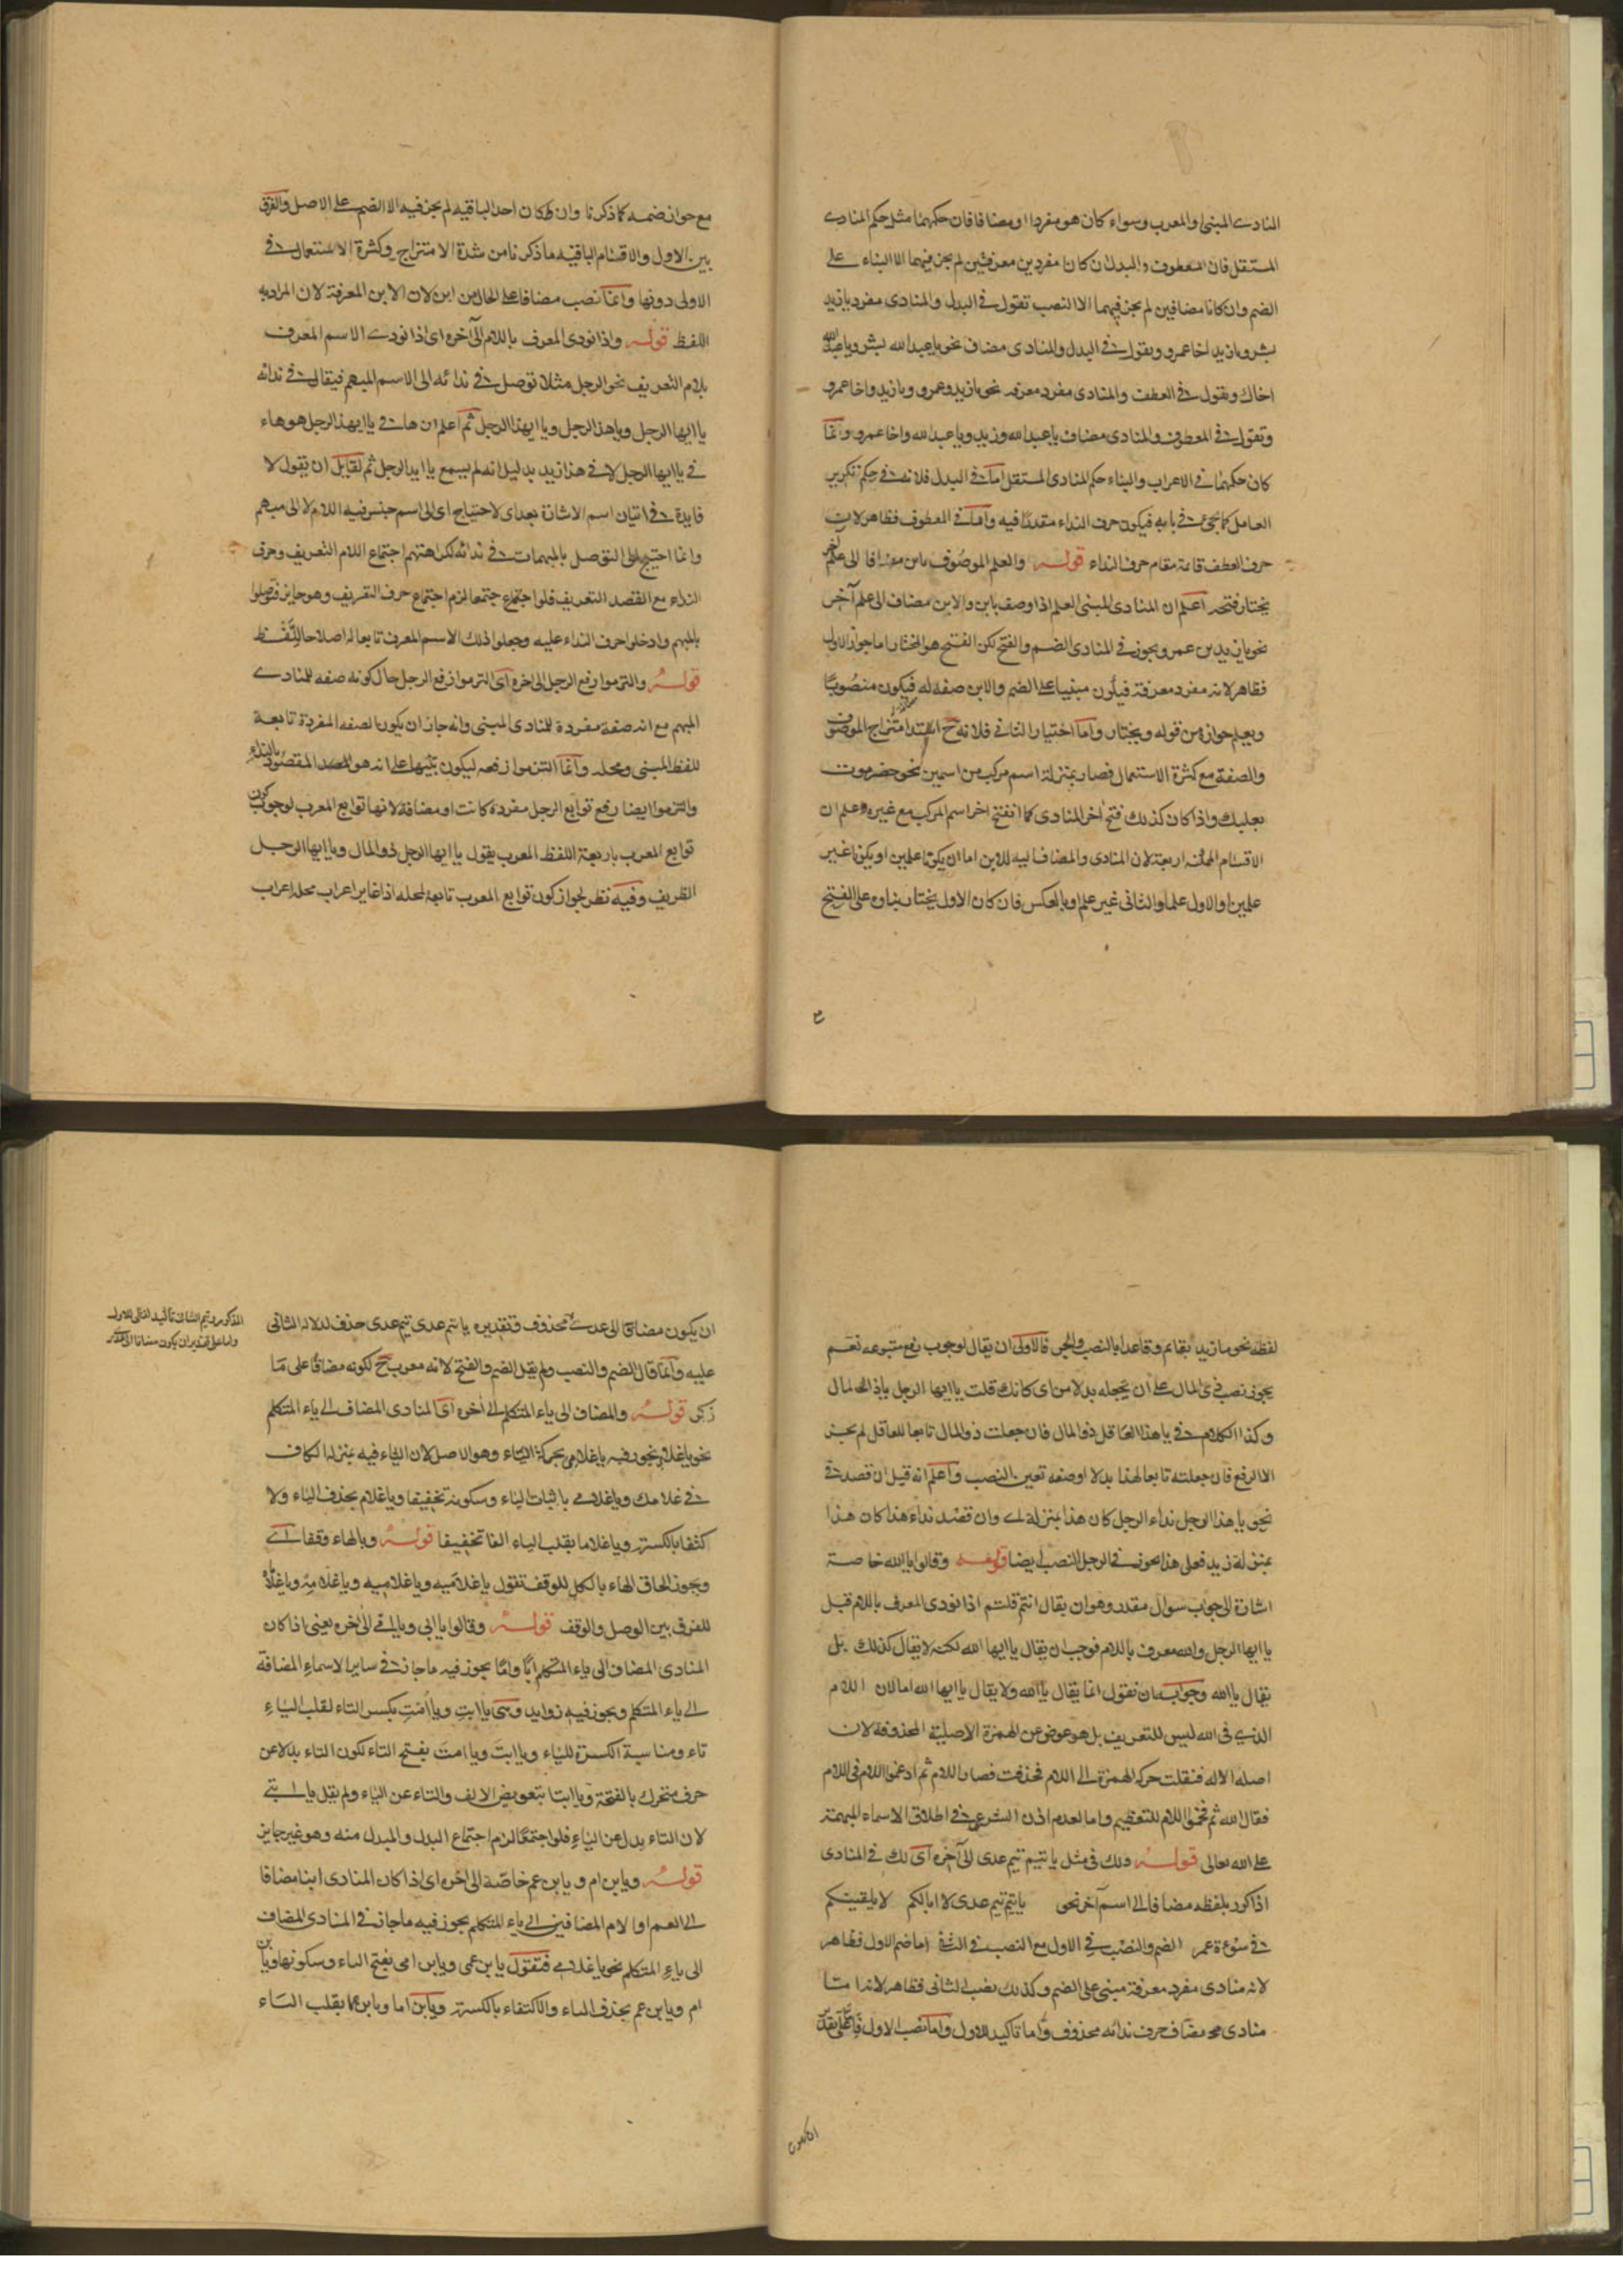 المنادى المبنى والمعرب وسواء كان هو مفردا او مضافا فان حكمهما مثل حكم المنادى
المستقل فان المعطوف والبدل ان كانا مفردين معرفتين لم يجز فيهما الا البناء على
الضم وان كانا مضافين لم يجز فيهما الا النصب تقول فى البدل والمنادى مفرد يا زيد
بشر ويا زيد اخا عمرو وتقول فى البدل والمنادى مضاف نحو يا عبد الله بشر ويا عبد الله
اخاك وتقول فى العطف والمنادى مفرد معرفه نحو يا زيد وعمرو ويا زيد واخا عمرو
وتقول فى المعطوف والمنادى مضاف يا عبد الله وزيد ويا عبد الله واخا عمرو وانما
كان حكمهما فى الاعراب والبناء حكم المنادى المستقل اما فى البدل فلانه فى حكم تكرير
العامل كما يجئ فى بابه فيكون حرف النداء مقدرا فيه واما فى المعطوف فظاهر لان
حرف العطف قائمة مقام حرف النداء قوله والعلم الموصوف بابن مضافا الى علم آخر
يختار فتحه اعلم ان المنادى المبنى العلم اذا وصف بابن والابن مضاف الى علم آخر
نحو يا زيد بن عمرو يجوز فى المنادى الضم والفتح لكن الفتح هو المختار اما جواز الاول
فظاهر لانه مفرد معرفة فيكون مبنيا على الضم والابن صفة له فيكون منصوبا
ويعلم جوازه من قوله ويختار واما اختيار الثانى فلانه ح امتزاج الموصوف
والصفة مع كثرة الاستعمال فصار بمنزلة اسم مركب من اسمين نحو حضرموت
بعلبك واذا كان كذلك فتح اخر المنادى كما انفتح اخر اسم المركب مع غيره وعلم ان
الاقسام الممكنه اربعة لان المنادى والمضاف اليه للابن اما ان يكونا علمين او يكونا غير
علمين او الاول علما والثانى غير علم او بالعكس فان كان الاول يختار بناؤه على الفتح
مع جواز ضمه كما ذكرنا وان كان احد الباقيه لم يجز فيه الا الضم على الاصل والفرق
بين الاول والاقسام الباقيه ما ذكرنا من شدة الامتزاج وكثرة الاستعمال فى
الاولى دونها وانما نصب مضافا على الحال من ابن لان الابن المعرفة لان المراد به
اللفظ قوله واذا نودى المعرف باللام الى آخره اى اذا نودى الاسم المعرف
بلام التعريف نحو الرجل مثلا توصل فى ندائه الى الاسم المبهم فيقال فى ندائه
يا ايها الرجل ويا هذا الرجل ويا ايهذا الرجل ثم اعلم ان ها فى يا ايهذا الرجل هو هاء
فى يا ايها الرجل لا فى هذا زيد بدليل انه لم يسمع يا اى الرجل ثم لقايل ان يقول لا
فايدة فى اتيان اسم الاشارة بعد اى لاحتياج اى الى اسم جنس فيه اللام لا الى مبهم
وانما احتيج الى التوصل بالمبهمات فى ندائه لكراهتهم اجتماع اللام التعريف وحرف
النداء مع القصد التعريف فلو اجتمعا لزم اجتماع حرف التعريف وهو جايز فتوصلوا
بالمبهم وادخلوا حرف النداء عليه وجعلوا ذلك الاسم المعرف تابعا له اصلاحا للفظ
قوله والتزموا رفع الرجل الى اخره اى التزموا رفع الرجل حال كونه صفه للمنادى
المبهم مع انه صفة مفردة للمنادى المبنى وانه جاز ان يكون الصفه المفردة تابعة
للفظ المبنى ومحله وانما التزموا رفعه ليكون تنبيها على انه هو المقصود بالنداء
والتزموا ايضا رفع توابع الرجل مفردة كانت او مضافة لانها توابع المعرب لوجوب كون
توابع المعرب تابعة اللفظ المعرب يقول يا ايها الرجل ذو المال ويا ايها الرجل
الظريف وفيه نظر لجواز كون توابع المعرب تابعة لمحله اذا غاير اعراب محله اعراب
لفظه نحو ما زيد بقايم وقاعدا بالنصب والجر فالاولى ان يقال لوجوب رفع متبوعه نعم
يجوز نصب ذى المال على ان يجعله بدلا من اى كانك قلت يا ايها الرجل يا ذا المال
وكذا الكلام فى يا هذا العاقل ذو المال فان جعلت ذو المال تابعا للعاقل لم يجز
الا الرفع فان جعلته تابعا لهذا بدلا او صفه تعين النصب واعلم انه قيل ان قصد فى
نحو يا هذا الرجل نداء الرجل كان هذا بمنزلة اى وان قصد نداء هذا كان هذا
بمنزلة زيد فعلى هذا يجوز فى الرجل النصب ايضا قوله وقالوا يا الله خاصة
اشارة الى جواب سوال مقدر وهو ان يقال انتم قلتم اذا نودى المعرف باللام قيل
يا ايها الرجل والله معرف باللام فوجب ان يقال يا ايها الله لكنه لا يقال كذلك بل
يقال يا الله وجوابه ان نقول انما يقال يا الله ولا يقال يا ايها الله اما لان اللام
الذى فى الله ليس للتعريف بل هو عوض عن الهمزة الاصلية المحذوفة لان
اصله الاله فنقلت حركة الهمزة الى اللام فحذفت فصار اللام ثم ادغموا اللام فى اللام
فقال الله ثم فخموا اللام للتعظيم واما لعدم اذن الشرعى فى اطلاق الاسماء المبهمة
على الله تعالى قوله ولك فى مثل يا تيم تيم عدى الى آخره اى لك فى المنادى
اذا كرر بلفظه مضافا الى اسم آخر نحو يا تيم تيم عدى لا ابا لكم لا يلقينكم
فى سوءة عمر الضم والنصب فى الاول مع النصب فى الثانى اما ضم الاول فظاهر
لانه منادى مفرد معرفة مبنى على الضم وكذلك نصب الثانى فظاهر لانه اما
منادى مضاف حرف ندائه محذوف واما تاكيد للاول واما نصب الاول فاما على تقدير
ان يكون مضافا الى عدى محذوف فتقديره يا تيم عدى تيم عدى حذف لدلالة الثانى
عليه وانما قال الضم والنصب ولم يقل الضم والفتح لانه معرب ح لكونه مضافا على ما
ذكر قوله والمضاف الى ياء المتكلم الى اخره اى المنادى المضاف الى ياء المتكلم
نحو يا غلامى يجوز فيه يا غلامى بحركة الياء وهو الاصل لان الياء فيه بمنزلة الكاف
فى غلامك ويا غلامى باثبات الياء وسكونه تخفيفا ويا غلام بحذف الياء ولا
كتفا بالكسرة ويا غلاما بقلب الياء الفا تخفيفا قوله وبالهاء وقفا اى
ويجوز الحاق الهاء بالكل للوقف تقول يا غلاميه ويا غلاميه ويا غلامه ويا غلاماه
للفرق بين الوصل والوقف قوله وقالوا يا ابى ويا امى الى اخره يعنى اذا كان
المنادى المضاف الى ياء المتكلم ابا واما يجوز فيه ما جاز فى ساير الاسماء المضافة
الى ياء المتكلم ويجوز فيه زوايد وهى يا ابت ويا امت بكسر التاء لقلب الياء
تاء ومناسبة الكسرة للياء ويا ابت ويا امت بفتح التاء لكون التاء بدلا عن
حرف متحرك بالفتحة ويا ابتا بتعويض الالف والتاء عن الياء ولم يقل يا ابتى
لان التاء بدل من الياء فلو اجتمعا لزم اجتماع البدل والمبدل منه وهو غير جايز
قوله ويا بن ام ويا بن عم خاصة الى اخره اى اذا كان المنادى ابنا مضافا
الى العم او الام المضافين الى ياء المتكلم يجوز فيه ما جاز فى المنادى المضاف
الى ياء المتكلم نحو يا غلامى فتقول يا بن عمى ويا بن امى بفتح الياء وسكونها ويا بن
ام ويا بن عم بحذف الياء والاكتفاء بالكسرة ويا بن اما ويا بن عما بقلب الياء
المذكور وتيم الثانى تاكيد لفظى للاول
واما على تقدير ان يكون مضافا الى